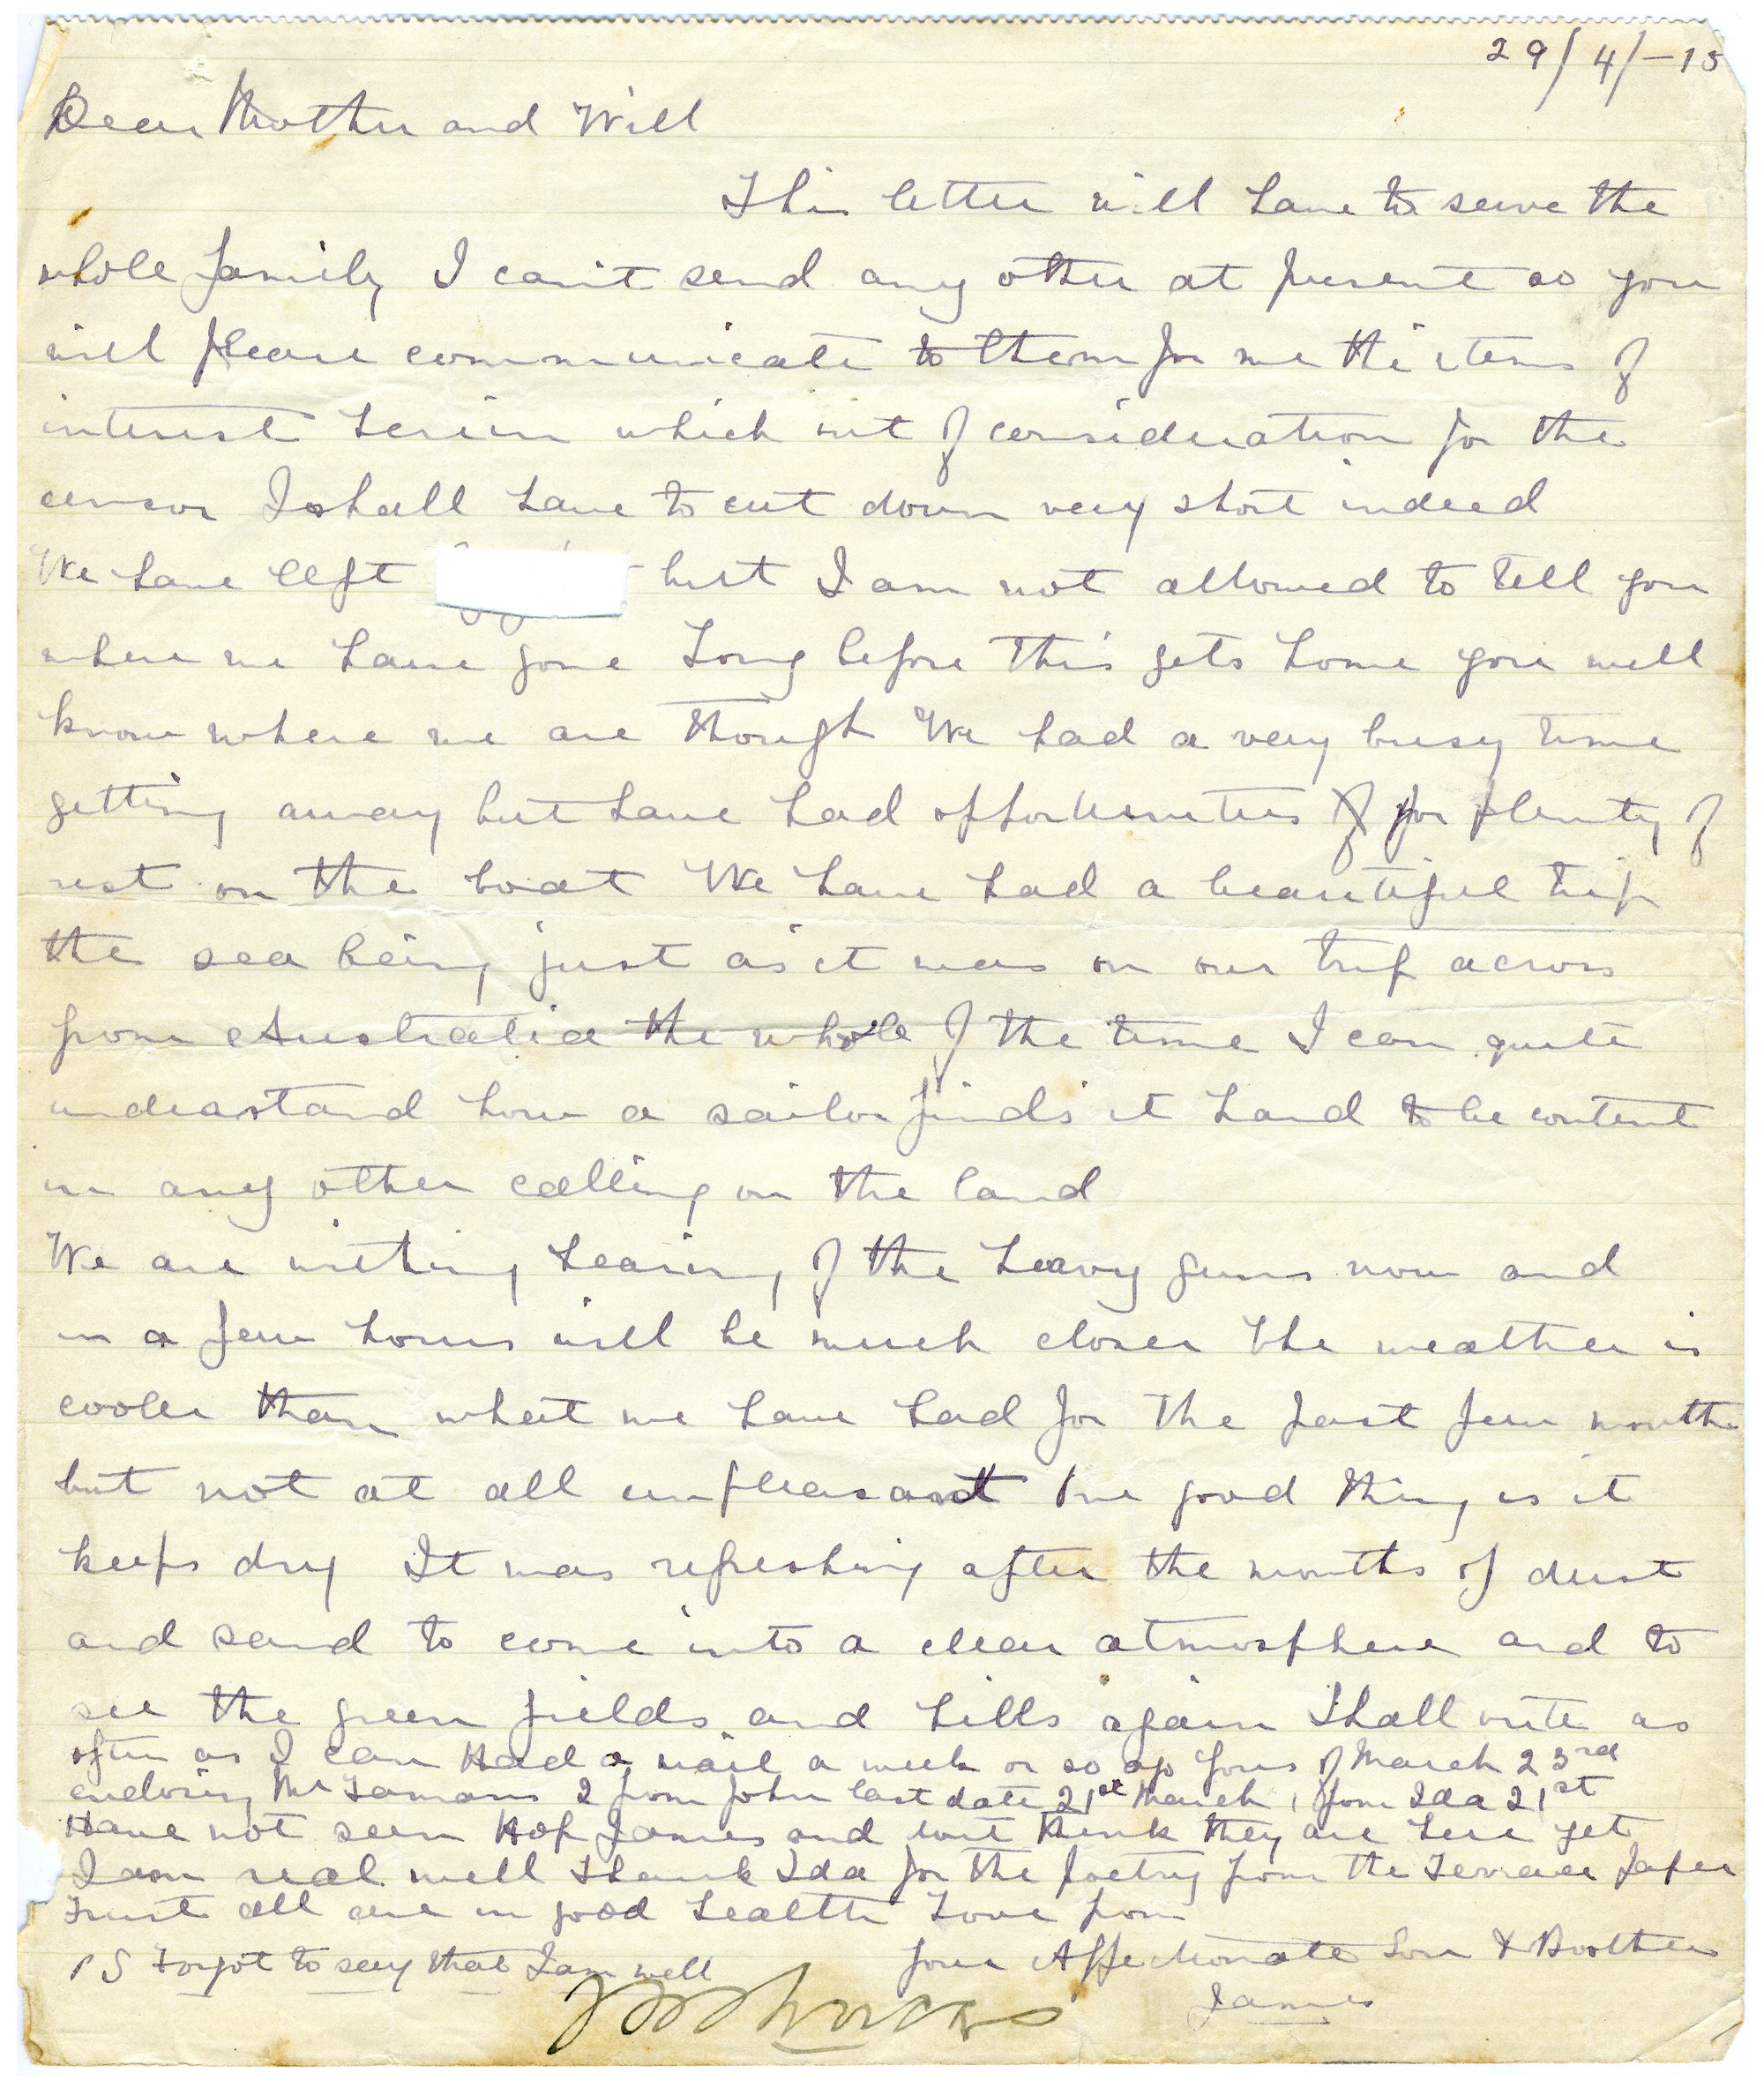 29/4/-15
Dear Mother and Will
This letter will have to serve the
whole family I can't send any other at present so you
will please communicate to them for me the items of
interest herein which out of consideration for the
censor I shall have to cut down very short indeed
We have left but I am not allowed to tell you
where we have gone Long before this gets home you will
know where we are though We had a very busy time
getting away but have had opportunities of for plenty of
rest on the boat We have had a beautiful trip
the sea being just as it was on our trip across
from Australia the whole of the time I can quite
understand how a sailor finds it hard to be content
in any other calling on the land
We are within hearing of the heavy guns now and
in a few hours will be much closer The weather is
cooler than what we have had for the past few months
but not at all unpleasant One good thing is it
keeps dry It was refreshing after the months of dust
and sand to come into a clear atmosphere and to
see the green fields and hills again Shall write as
often as I can Had a mail a week or so ago Yours of March 23rd
enclosing Mr 2 from John last date 21st March, 1 from Ida 21st
Have not seen Hop James and dont think they are here yet
I am real well Thank Ida for the poetry from the Terrace paper
Trust all are in good health Love from
PS Forgot to say that I am well
Your Affectionate Son & Brother
James